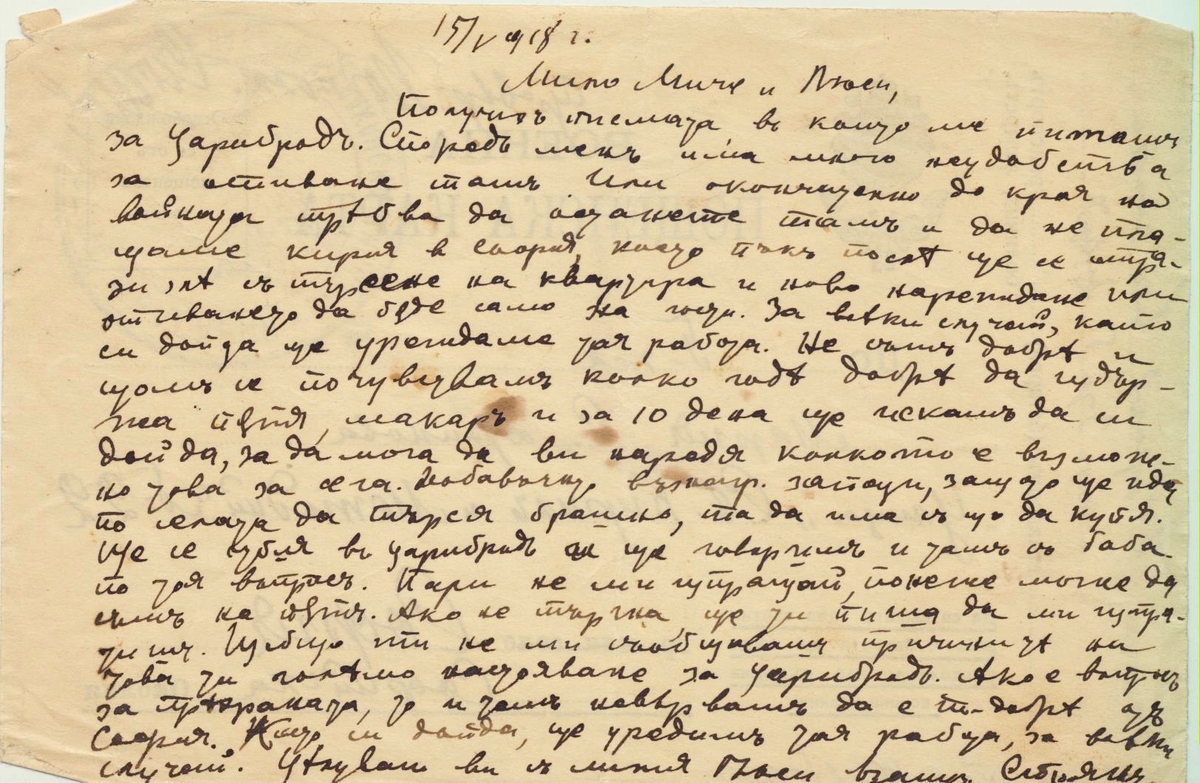 15/V 918 г.
Мило Миче и Люси,
Получихъ писмата въ които ме питашъ
за Царибродъ. Споредъ менъ има много неудобства
за отиване тамъ. Или окончателно до края на
войната трѣбва да останете тамъ и да не пла-
щаме кирия в София, което пъкъ послѣ ще се отра-
зи злѣ съ търсене на квартира и ново нареждане или
отиването да бѫде само на гости. За всѣки случай, като
си дойда ще уреждаме тая работа. Не съмъ добрѣ и
щомъ се почувствувамъ колко годѣ добрѣ да издър-
жа пѫтя, макаръ и за 10 дена ще искамъ да си
дойда, за да мога да ви наредя колкото е възмож-
но това за сега. Набавянто запази, защото ще ида
по селата да търся брашно, та да има съ що да купя.
Ще се отбия въ Царибродъ и ще говоримъ и тамъ съ баба
по тоя въпросъ. Пари не ми изпращай, понеже може да
съмъ на пѫтя. Ако не тръгна, ще ти пиша да ми изпра-
тишъ. Изобщо ти не ми съобщавашъ причинитѣ на
това ти голѣмо настояване за Царибродъ. Ако е въпросъ
за прѣхраната, то и тамъ невѣрвамъ да е по-добрѣ отъ
София. Като си дойда, ще уредимъ тая работа, за всѣки
случай. Цѣлувам ви съ милия Люси вашъ Стоянъ